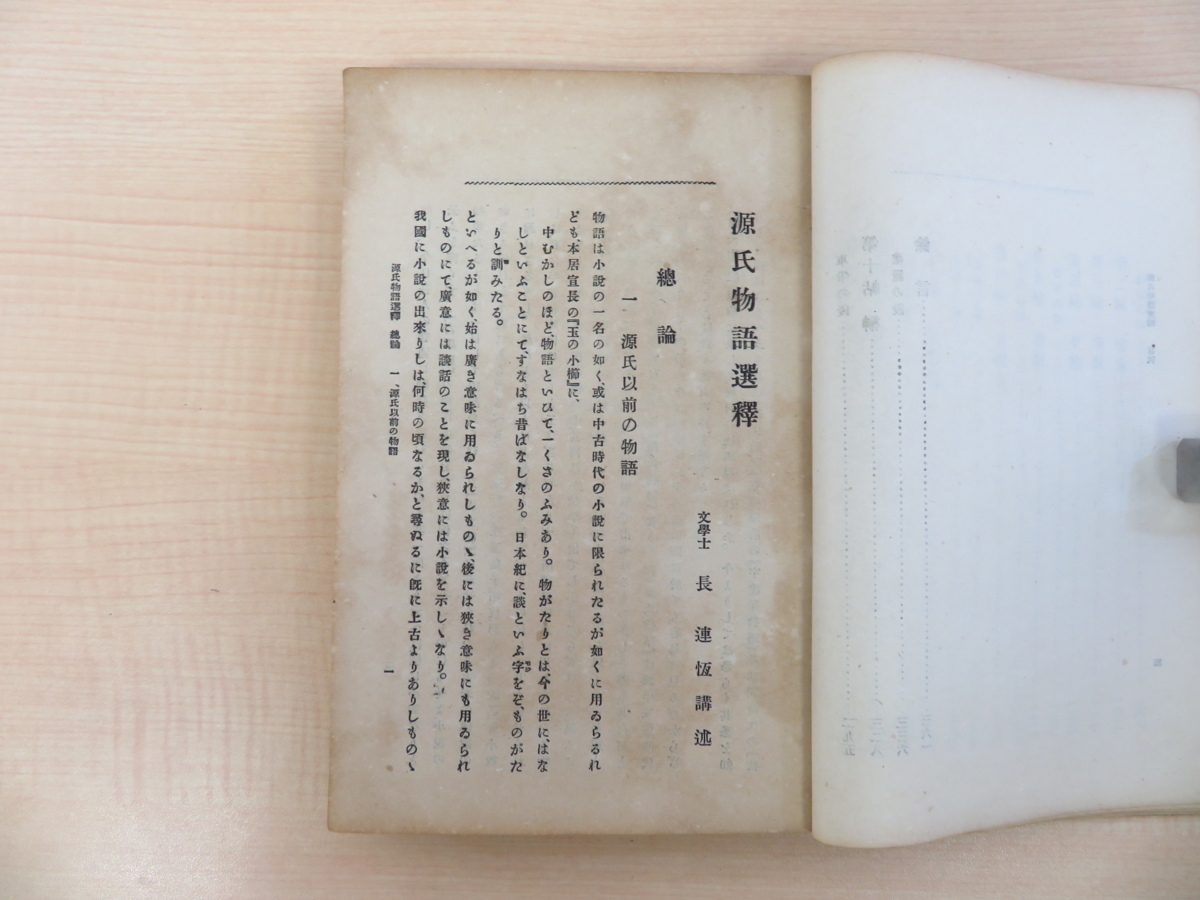 源氏物語選釋
文學士 長 連恆講述
總論
一 源氏以前の物語
物語は小說の一名の如く、或は中古時代の小說に限られたるが如くに用ゐらるれ
ども、本居宣長の『玉の小櫛』に、
中むかしのほど、物語といひて、一くさのふみあり。物がたりとは、今の世に、はな
しといふことにて、すなはち昔ばなしなり。日本紀に、談といふ字をぞ、ものがた
りと訓みたる。
といへるが如く、始は廣き意味に用ゐられしものゝ、後には狹き意味にも用ゐられ
しものにて、廣意には談話のことを現し、狹意には小說を示しゝなり。
我國に小說の出來りしは、何時の頃なるか、と尋ぬるに既に上古よりありしものゝ
源氏物語選釋 總論 一、源氏以前の物語
一